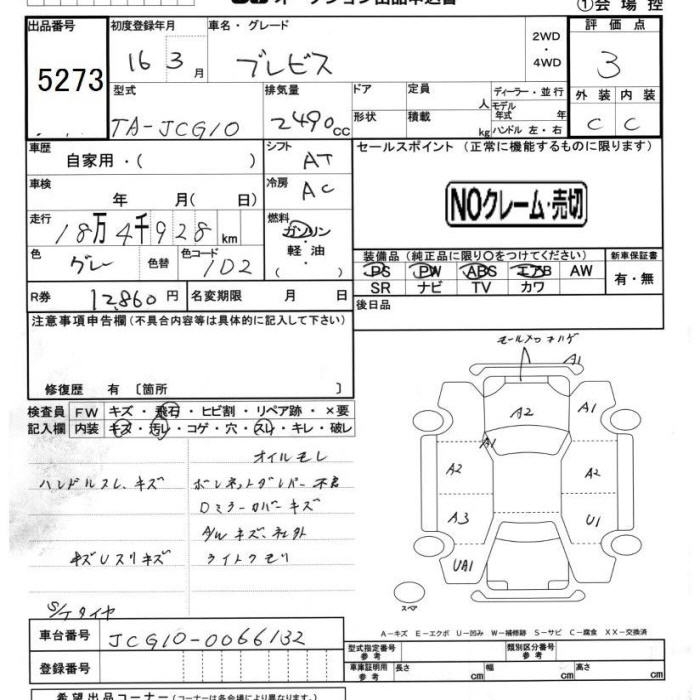 オークション出品申込書
①会場控
出品番号
5273
初度登録年月
16 3 月
車名・グレード
ブレビス
2WD
・
4WD
評価点
3
型式
TA-JCG10
排気量
2490 cc
ドア
形状
定員 人
積載 kg
ディーラー・並行
モデル年式 年
ハンドル 左・右
外装 内装
C C
車歴
自家用・( )
シフト
AT
セールスポイント (正常に機能するものに限ります)
NOクレーム・売切
車検
年 月( 日)
冷房
AC
走行
18万4千928 km
燃料
ガソリン
・
軽油
( )
色
グレー
色替
色コード
1D2
装備品 (純正品に限り○をつけてください)
新車保証書
PS PW ABS エアB AW
SR ナビ TV カワ
有・無
R券 12,860 円
名変期限 月 日
後日品
注意事項申告欄 (不具合内容等は具体的に記入して下さい)
修復歴 有 〔箇所 〕
検査員
記入欄
FW キズ・飛石・ヒビ割・リペア跡・×要
内装 キズ・汚レ・コゲ・穴・スレ・キレ・破レ
オイルモレ
ハンドルスレ、キズ
ボンネットダンパー不良
Dミラーカバーキズ
A/W キズ、社外
キズUスリキズ
ライトクモリ
S/Tタイヤ
モールメッキハゲ
A1
A2
A1
A1
A2
A2
A3
U1
UA1
スペア
A−キズ E−エクボ U−凹み W−補修跡 S−サビ C−腐食 XX−交換済
車台番号
JCG10-0066132
登録番号
型式指定番号
参考
類別区分番号
参考
車庫証明用
参考
長さ cm 幅 cm 高さ cm
希望出品コーナー (コーナーは各会場により異なります。)